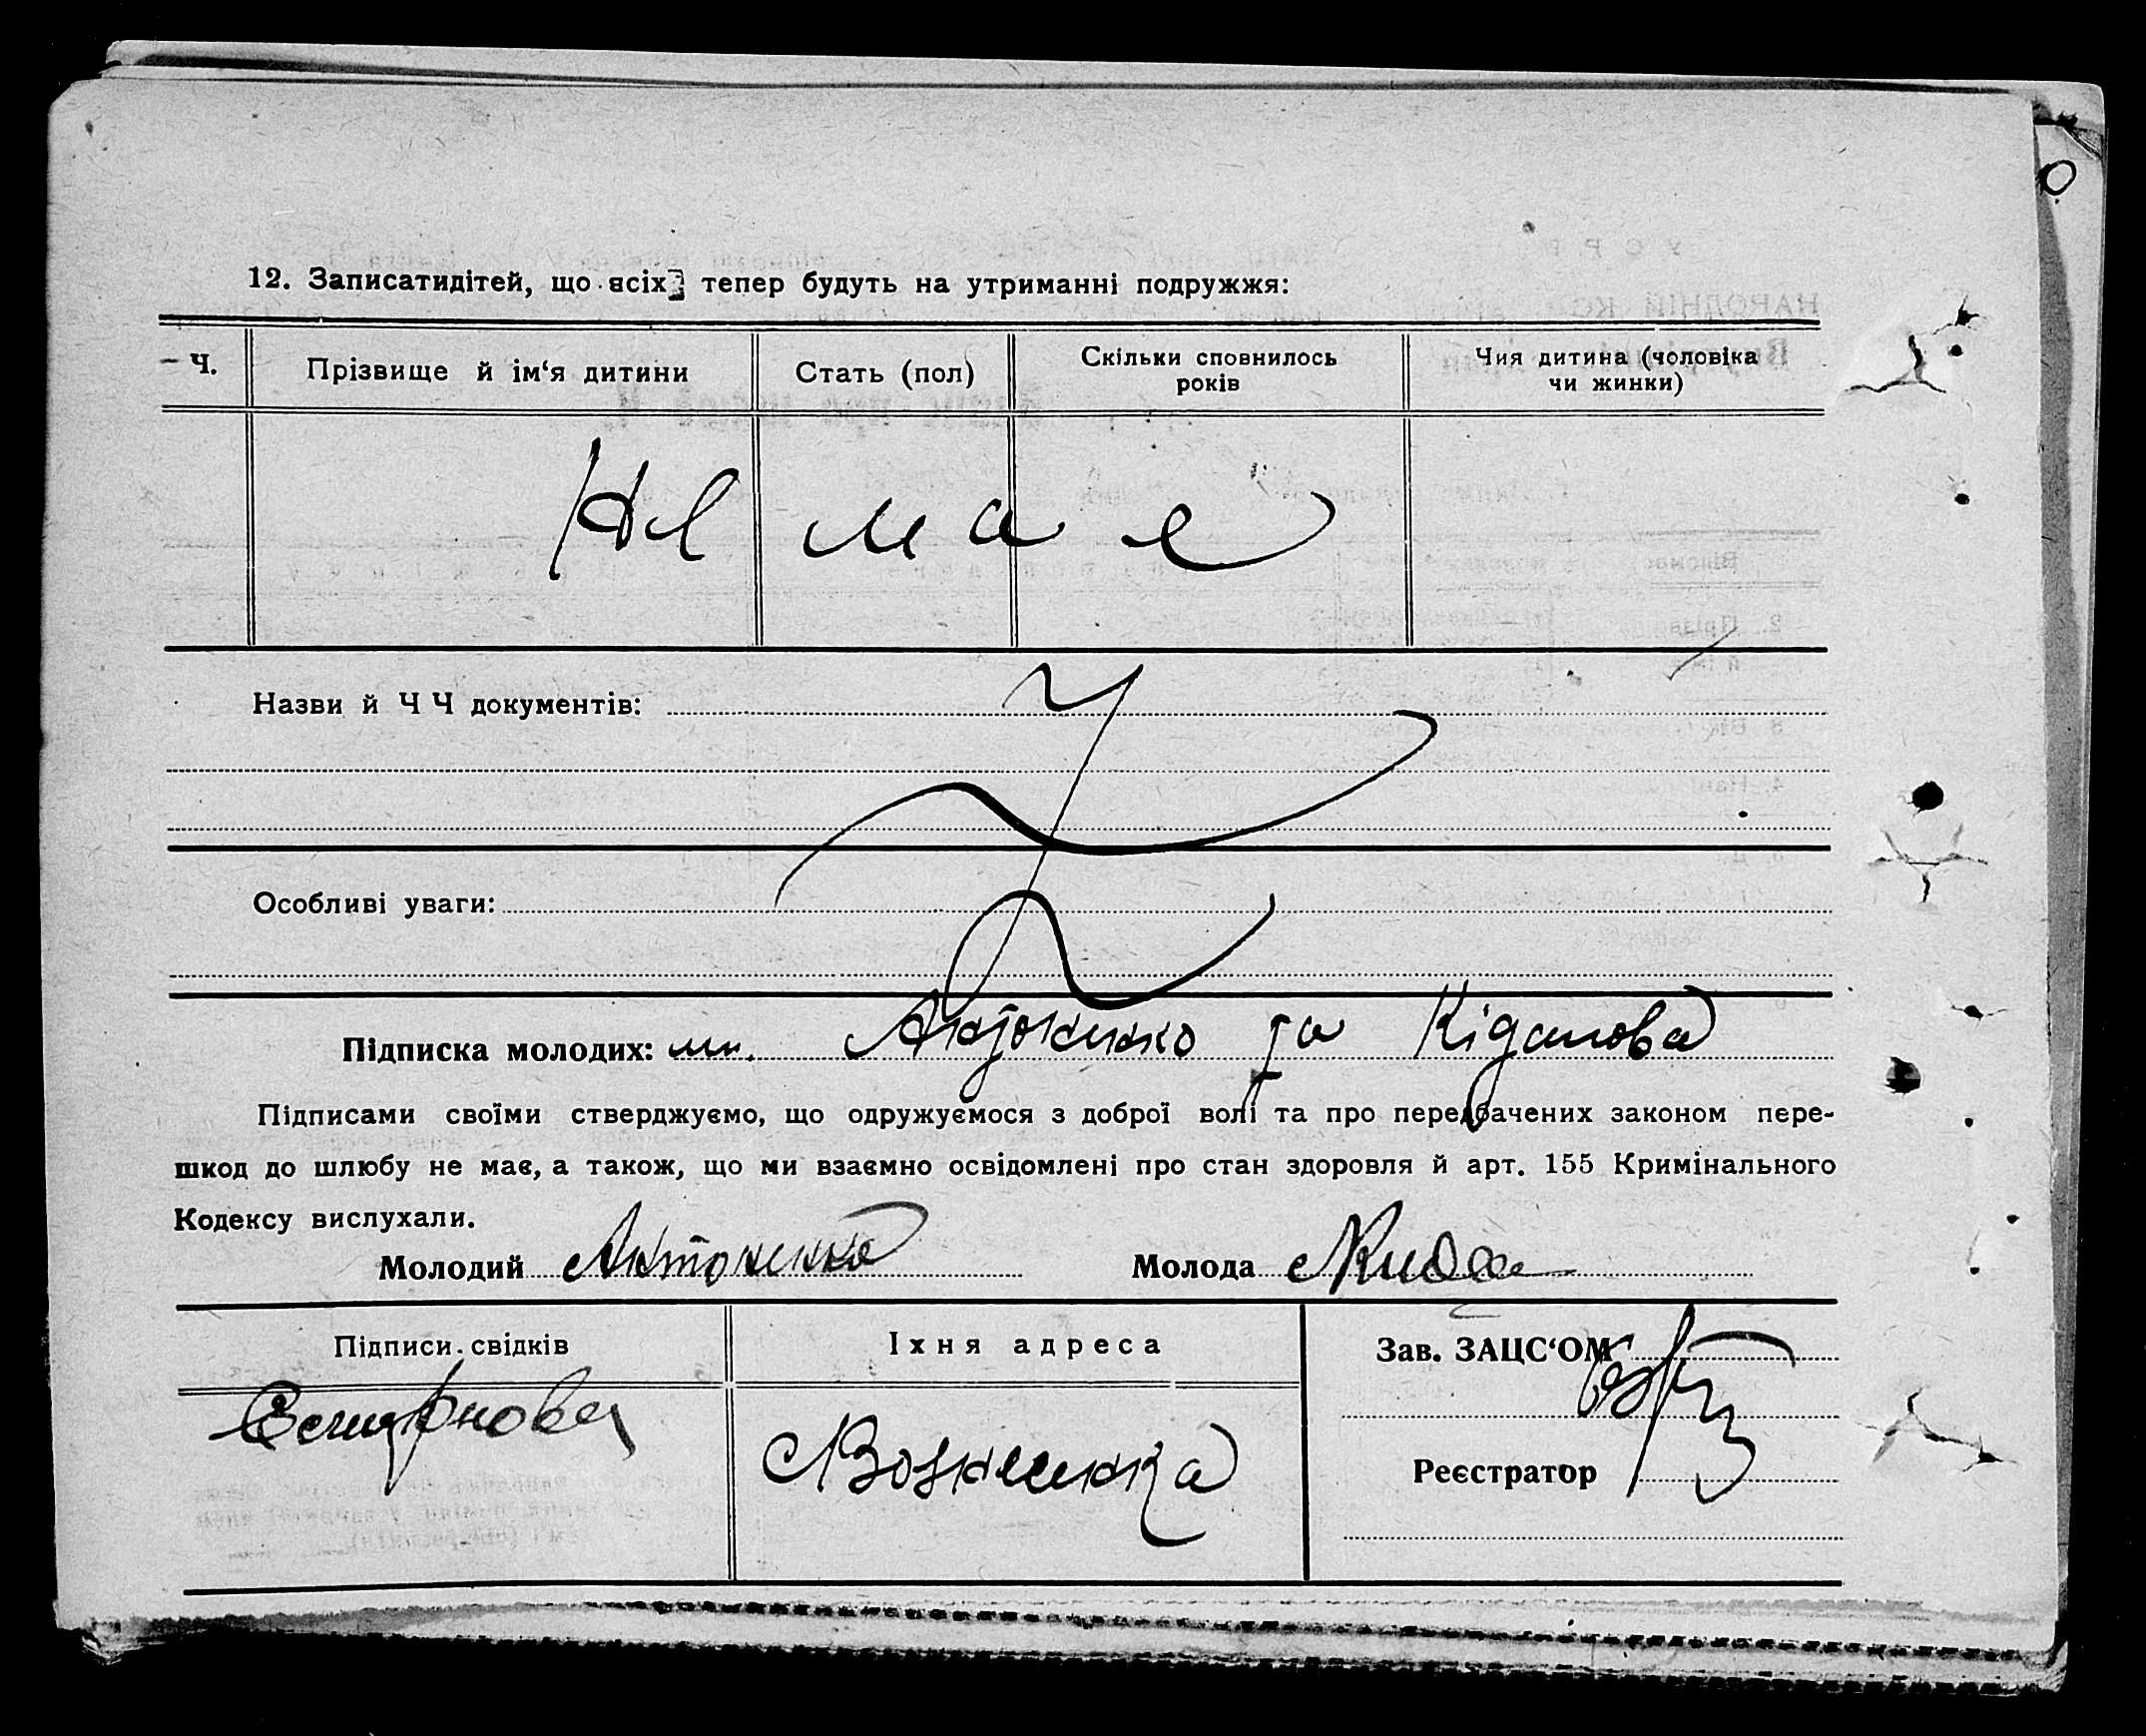 12. Записатидітей, що всіх тепер будуть на утриманні подружжя:
Ч. Прізвище й ім‘я дитини Стать (пол) Скільки сповнилось років Чия дитина (чоловіка чи жинки)
Не має
Назви й ЧЧ документів:
Особливі уваги:
Підписка молодих: ми. Антоненко та
Підписами своїми стверджуємо, що одружуємося з доброї волі та про передбачених законом пере-
шкод до шлюбу не має, а також, що ми взаємно освідомлені про стан здоровля й арт. 155 Кримінального
Кодексу вислухали.
Молодий Антоненко Молода
Підписи свідків Їхня адреса Зав. ЗАЦС‘ОМ
Реєстратор